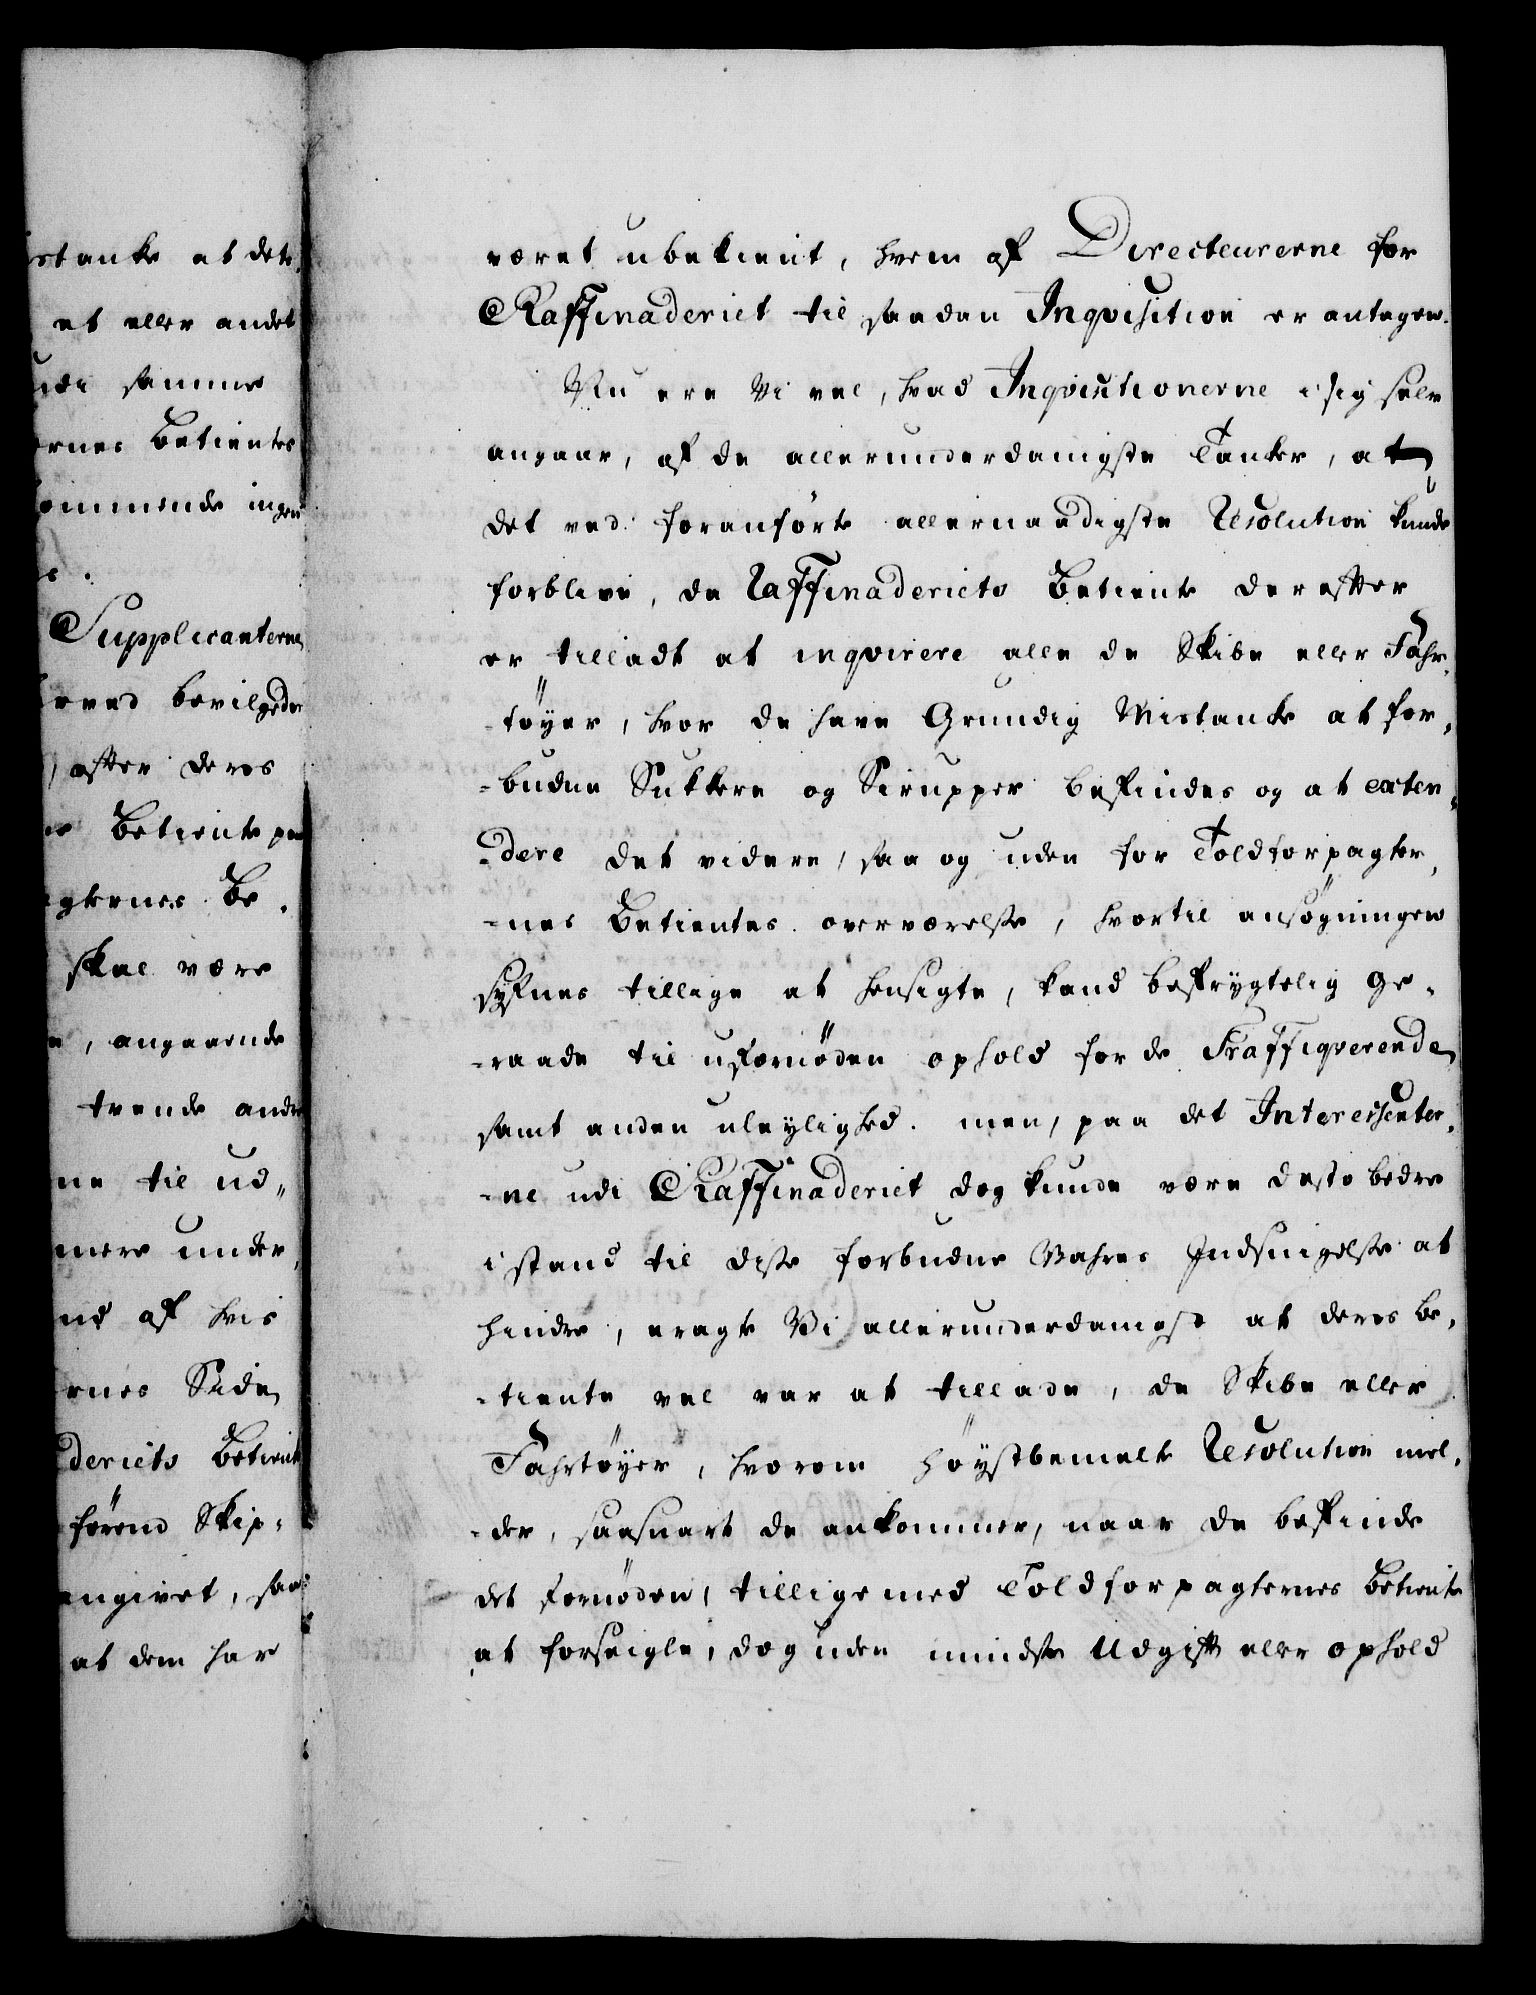 istanke at det
et eller andet
udi samme
ernes Betientes
kommende ingen
Supplicanterne
herved bevilgede
efter deres
Betiente paa
agternes Be-
skal være
, angaaende
trende andre
ne til ud„
mere under
nd af hvis
ernes Side
deriets Betient
förend Skip-
angivet, saa
at dem har
været ubekient, hvem af Directeurerne for
Raffinaderiet til saadan Inqvisition er antagen.
Nu ere Vi vel, hvad Inqvisitionerne i sig selv
angaar, af de allerunderdanigste Tanker, at
det ved foranförte allernaadigste Resolution kunde
forblive, de Raffinaderiets Betiente derefter
er tilladt at inqvirere alle de Skibe eller Fahr-
-töyer, hvor de have Grundig Mistanke at for-
-budne Sukkere og Sirupper befindes og at exten-
-dere det videre, saa og uden for Toldforpagter-
-nes Betientes overværelse, hvortil ansögningen
syfnes tillige at hensigte, kand befrygtelig ge-
-raade til ufornöden ophold for de Traffiqverende
samt anden uleylighed. men, paa det Interessenter-
-ne udi Raffinaderiet dog kunde være desto bedre
i stand til disse forbudne Wahres Indsnigelse at
hindre, eragte Vi allerunderdanigst at deres be-
-tiente vel var at tillade, de Skibe eller
Fahrtöyer, hvorom höystbemelte Resolution mel-
-der, saasnart de ankommer, naar de befinde
det fornöden, tilligemed Toldforpagternes Betiente
at forseigle, dog uden mindste Udgift eller ophold